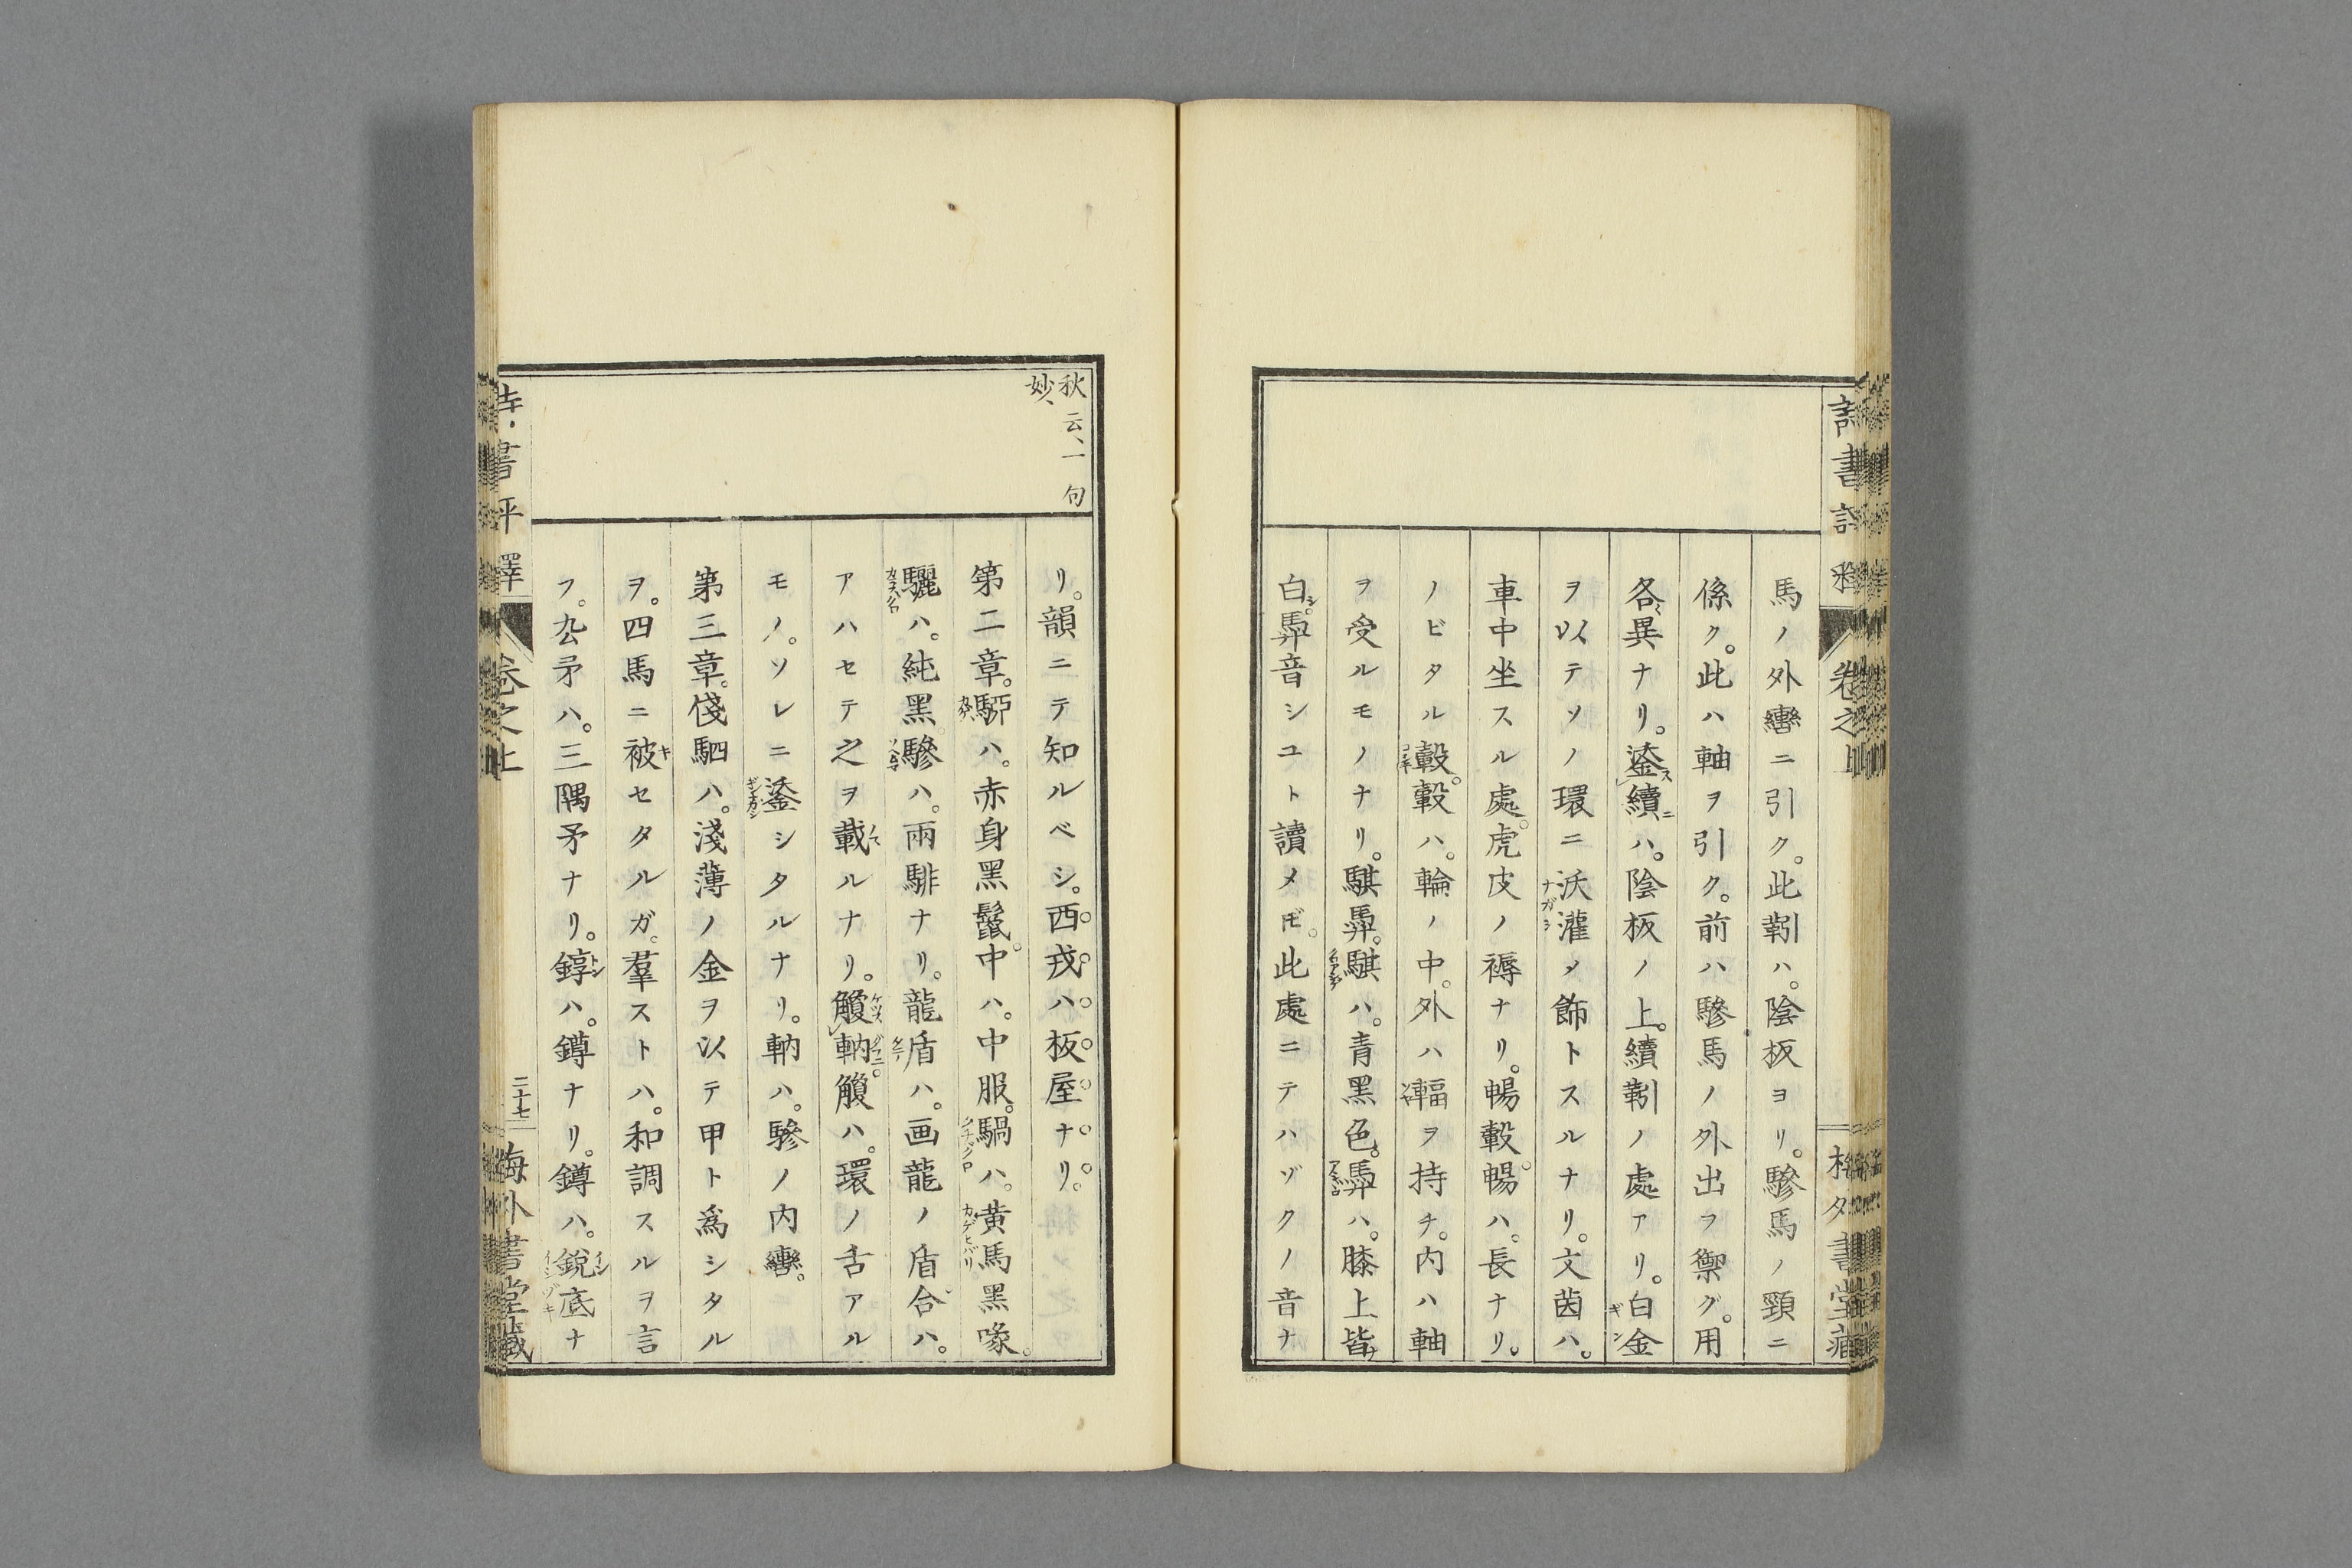 馬ノ外轡ニ引ク。此靷ハ。陰板ヨリ。驂馬ノ頸ニ
係ク。此ハ軸ヲ引ク。前ハ驂馬ノ外出ヲ禦グ。用
各異ナリ。鋈續ハ。陰板ノ上。續靷ノ處アリ。白金
ヲ以テソノ環ニ沃灌メ飾トスルナリ。文茵ハ。
車中坐スル處。虎皮ノ褥ナリ。暢轂。暢ハ。長ナリ。
ノビタル轂。轂ハ。輪ノ中。外ハ輻ヲ持チ。内ハ軸
ヲ受ルモノナリ。騏馵。騏ハ。青黑色。馵ハ。膝上皆
白。馵音シユト讀メ𪜈。此處ニテハヅクノ音ナ
秋云、一句
妙、
リ。韻ニテ知ルベシ。西戎ハ板屋ナリ。
第二章。駵ハ。赤身黑鬣。中ハ。中服。騧ハ。黄馬黑喙。
驪ハ。純黑。驂ハ。兩騑ナリ。龍盾ハ。画龍ノ盾。合ハ。
アハセテ之ヲ載ルナリ。觼軜。觼ハ。環ノ舌アル
モノ。ソレニ鋈シタルナリ。軜ハ。驂ノ内轡。
第三章。俴駟ハ。淺薄ノ金ヲ以テ甲ト爲シタル
ヲ。四馬ニ被セタルガ。羣ストハ。和調スルヲ言
フ。厹矛ハ。三隅矛ナリ。錞ハ。鐏ナリ。鐏ハ。銳底ナ
卷之上
二十七